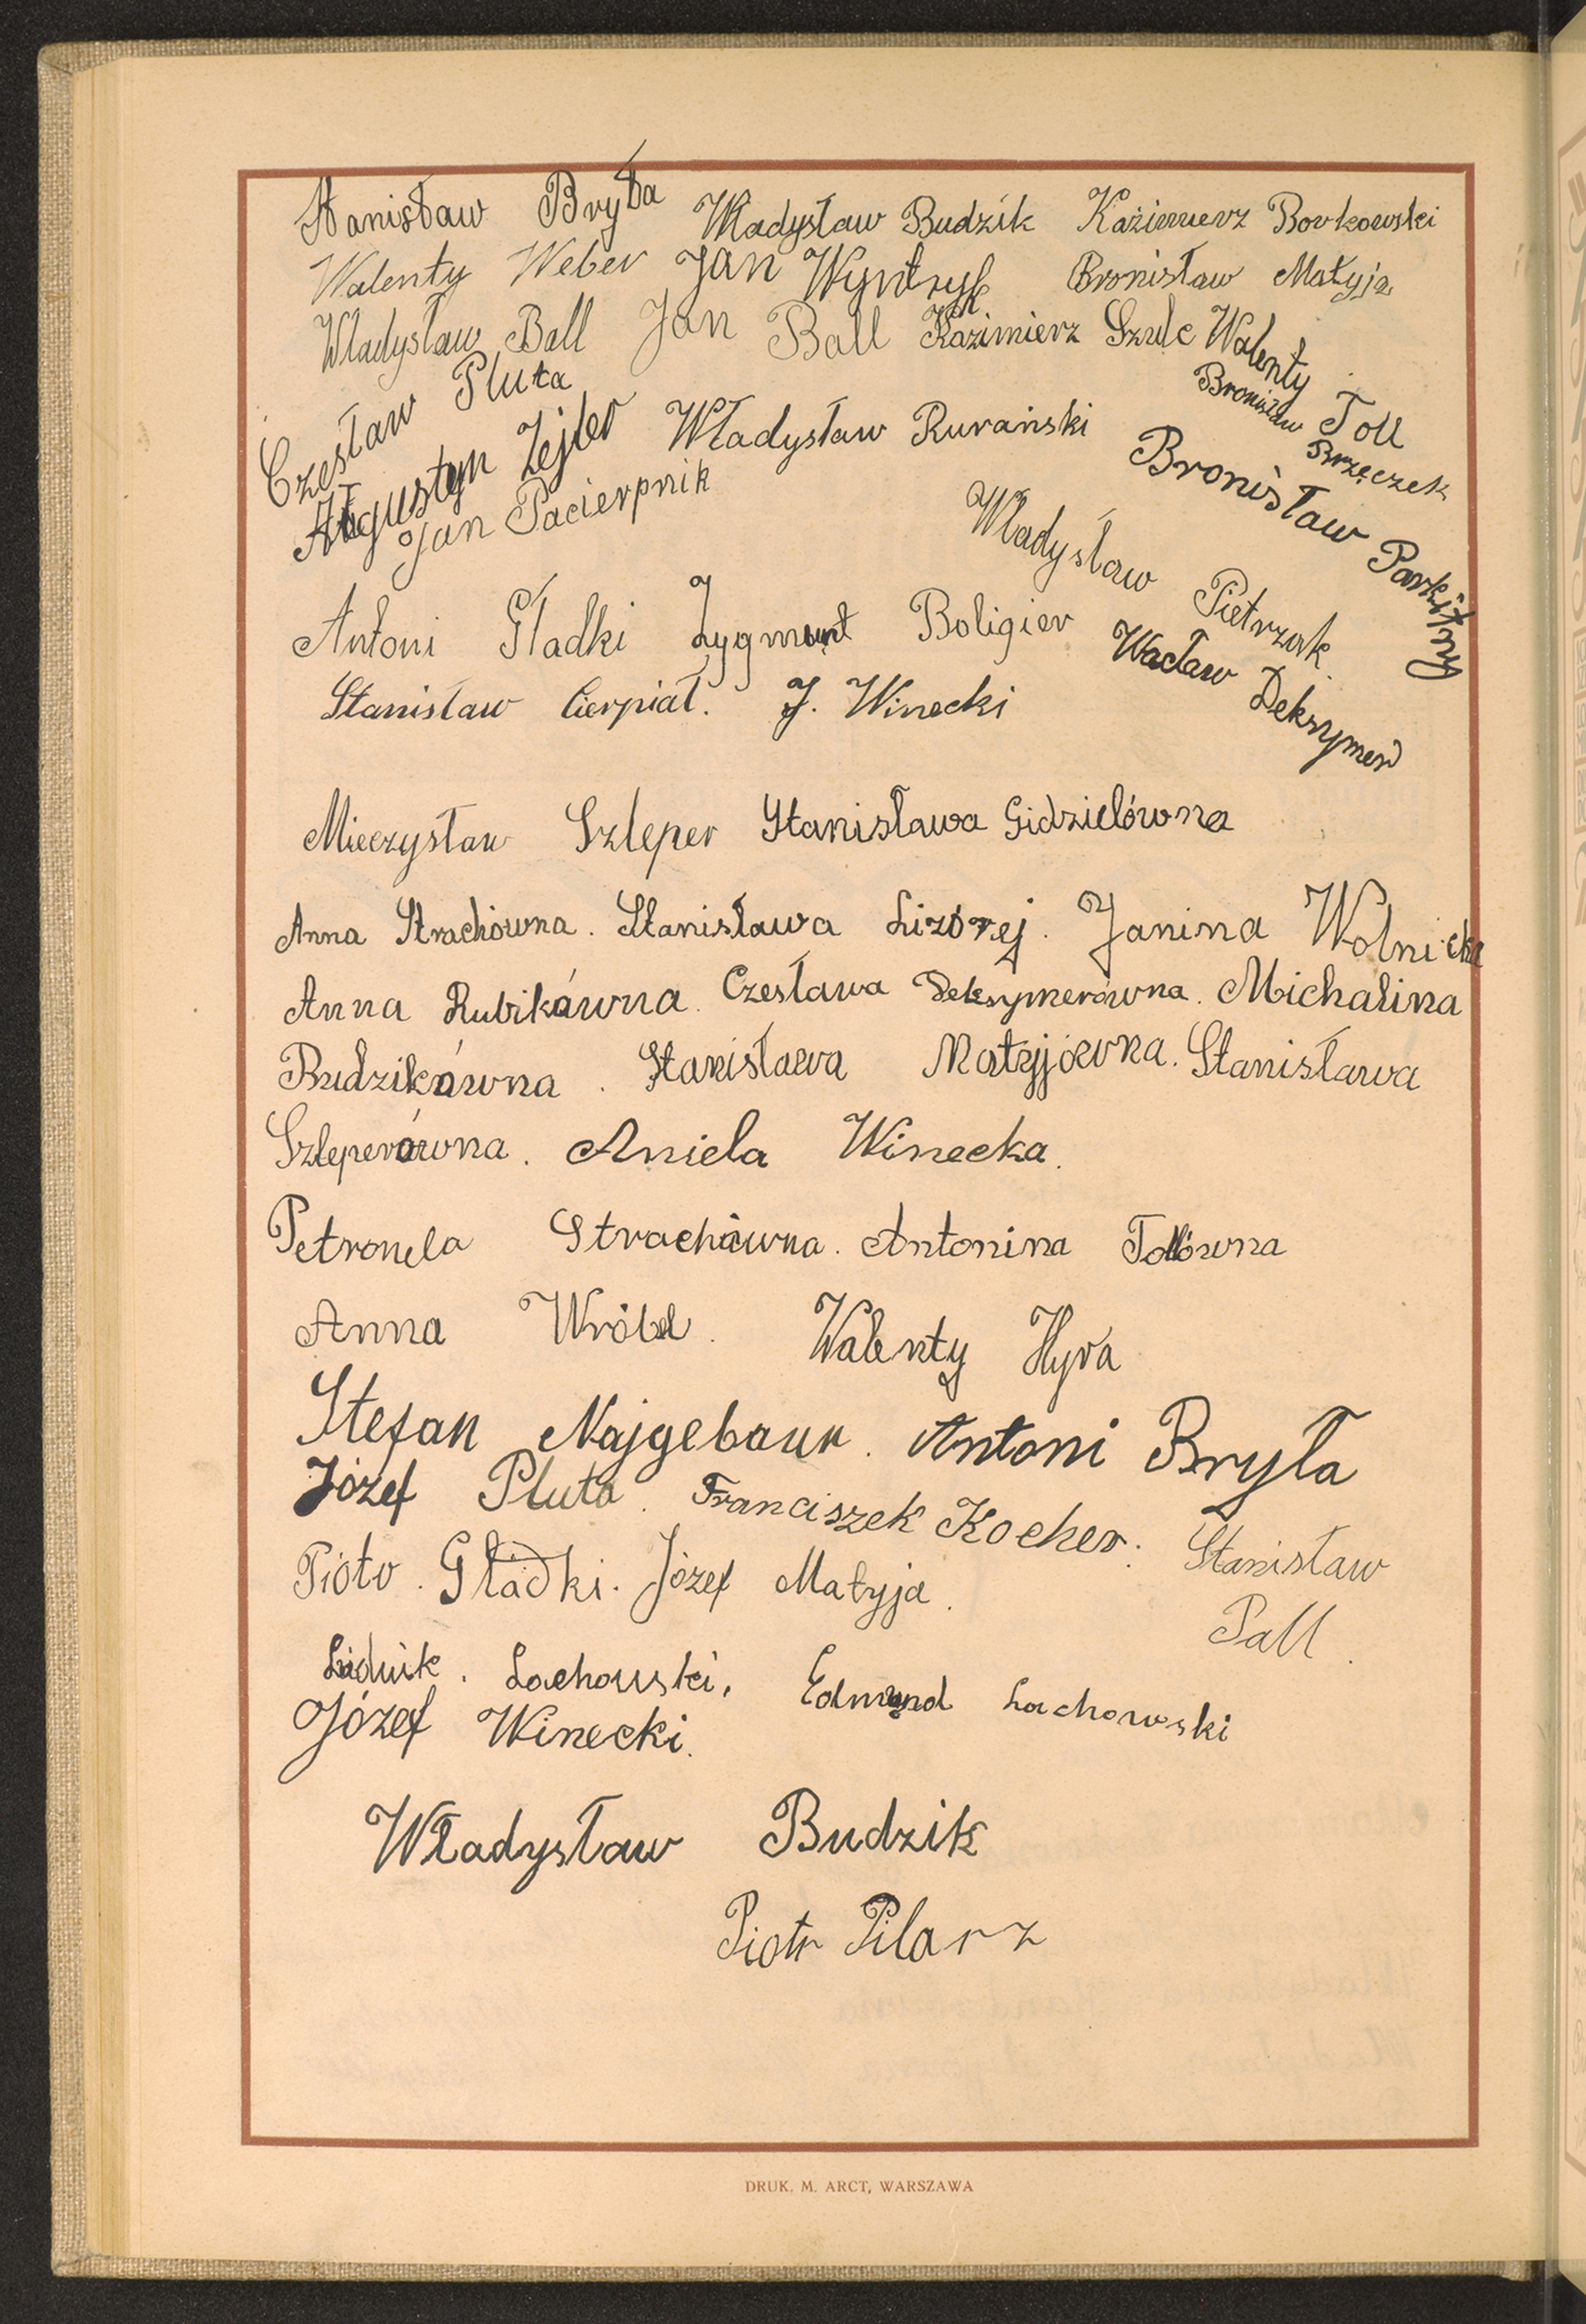 Stanisław Bryła Władysław Budzik Kazimierz Borkowski
Walenty Weber Jan Wyntryb Bronisław Matyja
Władysław Ball Jan Ball Kazimierz Szulc Walenty Toll
Czesław Pluta Bronisław Brzęczek
Augustyn Zejler Władysław Rurański Bronisław Parkitny
Jan Pacierpnik Władysław Pietrzak.
Antoni Gładki Zygmunt Boligier Wacław Deksymer
Stanisław Cierpiał. J. Winecki
Mieczysław Szleper Stanisława Gidzielówna
Anna Strachówna. Stanisława Lizórej. Janina Wolnicka
Anna Rubikówna. Czesława Deksymerówna. Michalina
Budzikówna. Stanisława Matyjówna. Stanisława
Szleperówna. Aniela Winecka.
Petronela Strachówna. Antonina Tollówna
Anna Wróbel. Walenty Hyra
Stefan Najgebaur. Antoni Bryła
Józef Pluta. Franciszek Kocher. Stanisław
Piotr. Gładki. Józef Matyja. Pall.
Lachowski, Edmund Lachowski
Józef Winecki.
Władysław Budzik
Piotr Pilarz
DRUK. M. ARCT, WARSZAWA